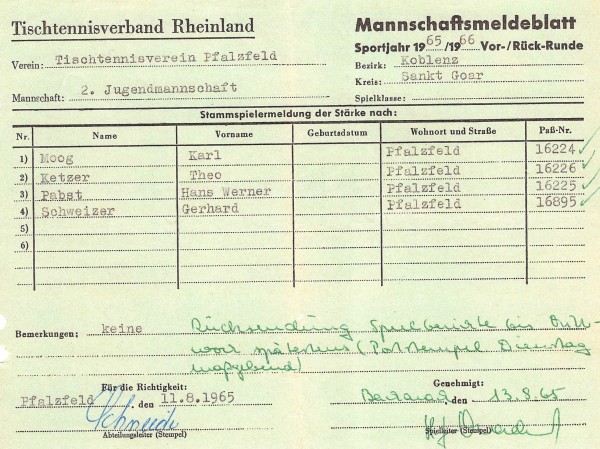 Tischtennisverband Rheinland
Mannschaftsmeldeblatt
Sportjahr 1965/1966 Vor-/Rück-Runde
Verein: Tischtennisverein Pfalzfeld
Bezirk: Koblenz
Kreis: Sankt Goar
Mannschaft: 2. Jugendmannschaft
Spielklasse:
Stammspielermeldung der Stärke nach:
Nr. Name Vorname Geburtsdatum Wohnort und Straße Paß-Nr.
1) Moog Karl Pfalzfeld 16224
2) Ketzer Theo Pfalzfeld 16226
3) Pabst Hans Werner Pfalzfeld 16225
4) Schweizer Gerhard Pfalzfeld 16895
5)
6)
Bemerkungen: keine Rücksendung Spielberichte bis
spätestens (Poststempel Dienstag
maßgebend)
Für die Richtigkeit:
Genehmigt:
Pfalzfeld, den 11.8.1965
den 13.8.65
Schneider
Abteilungsleiter (Stempel)
Spielleiter (Stempel)